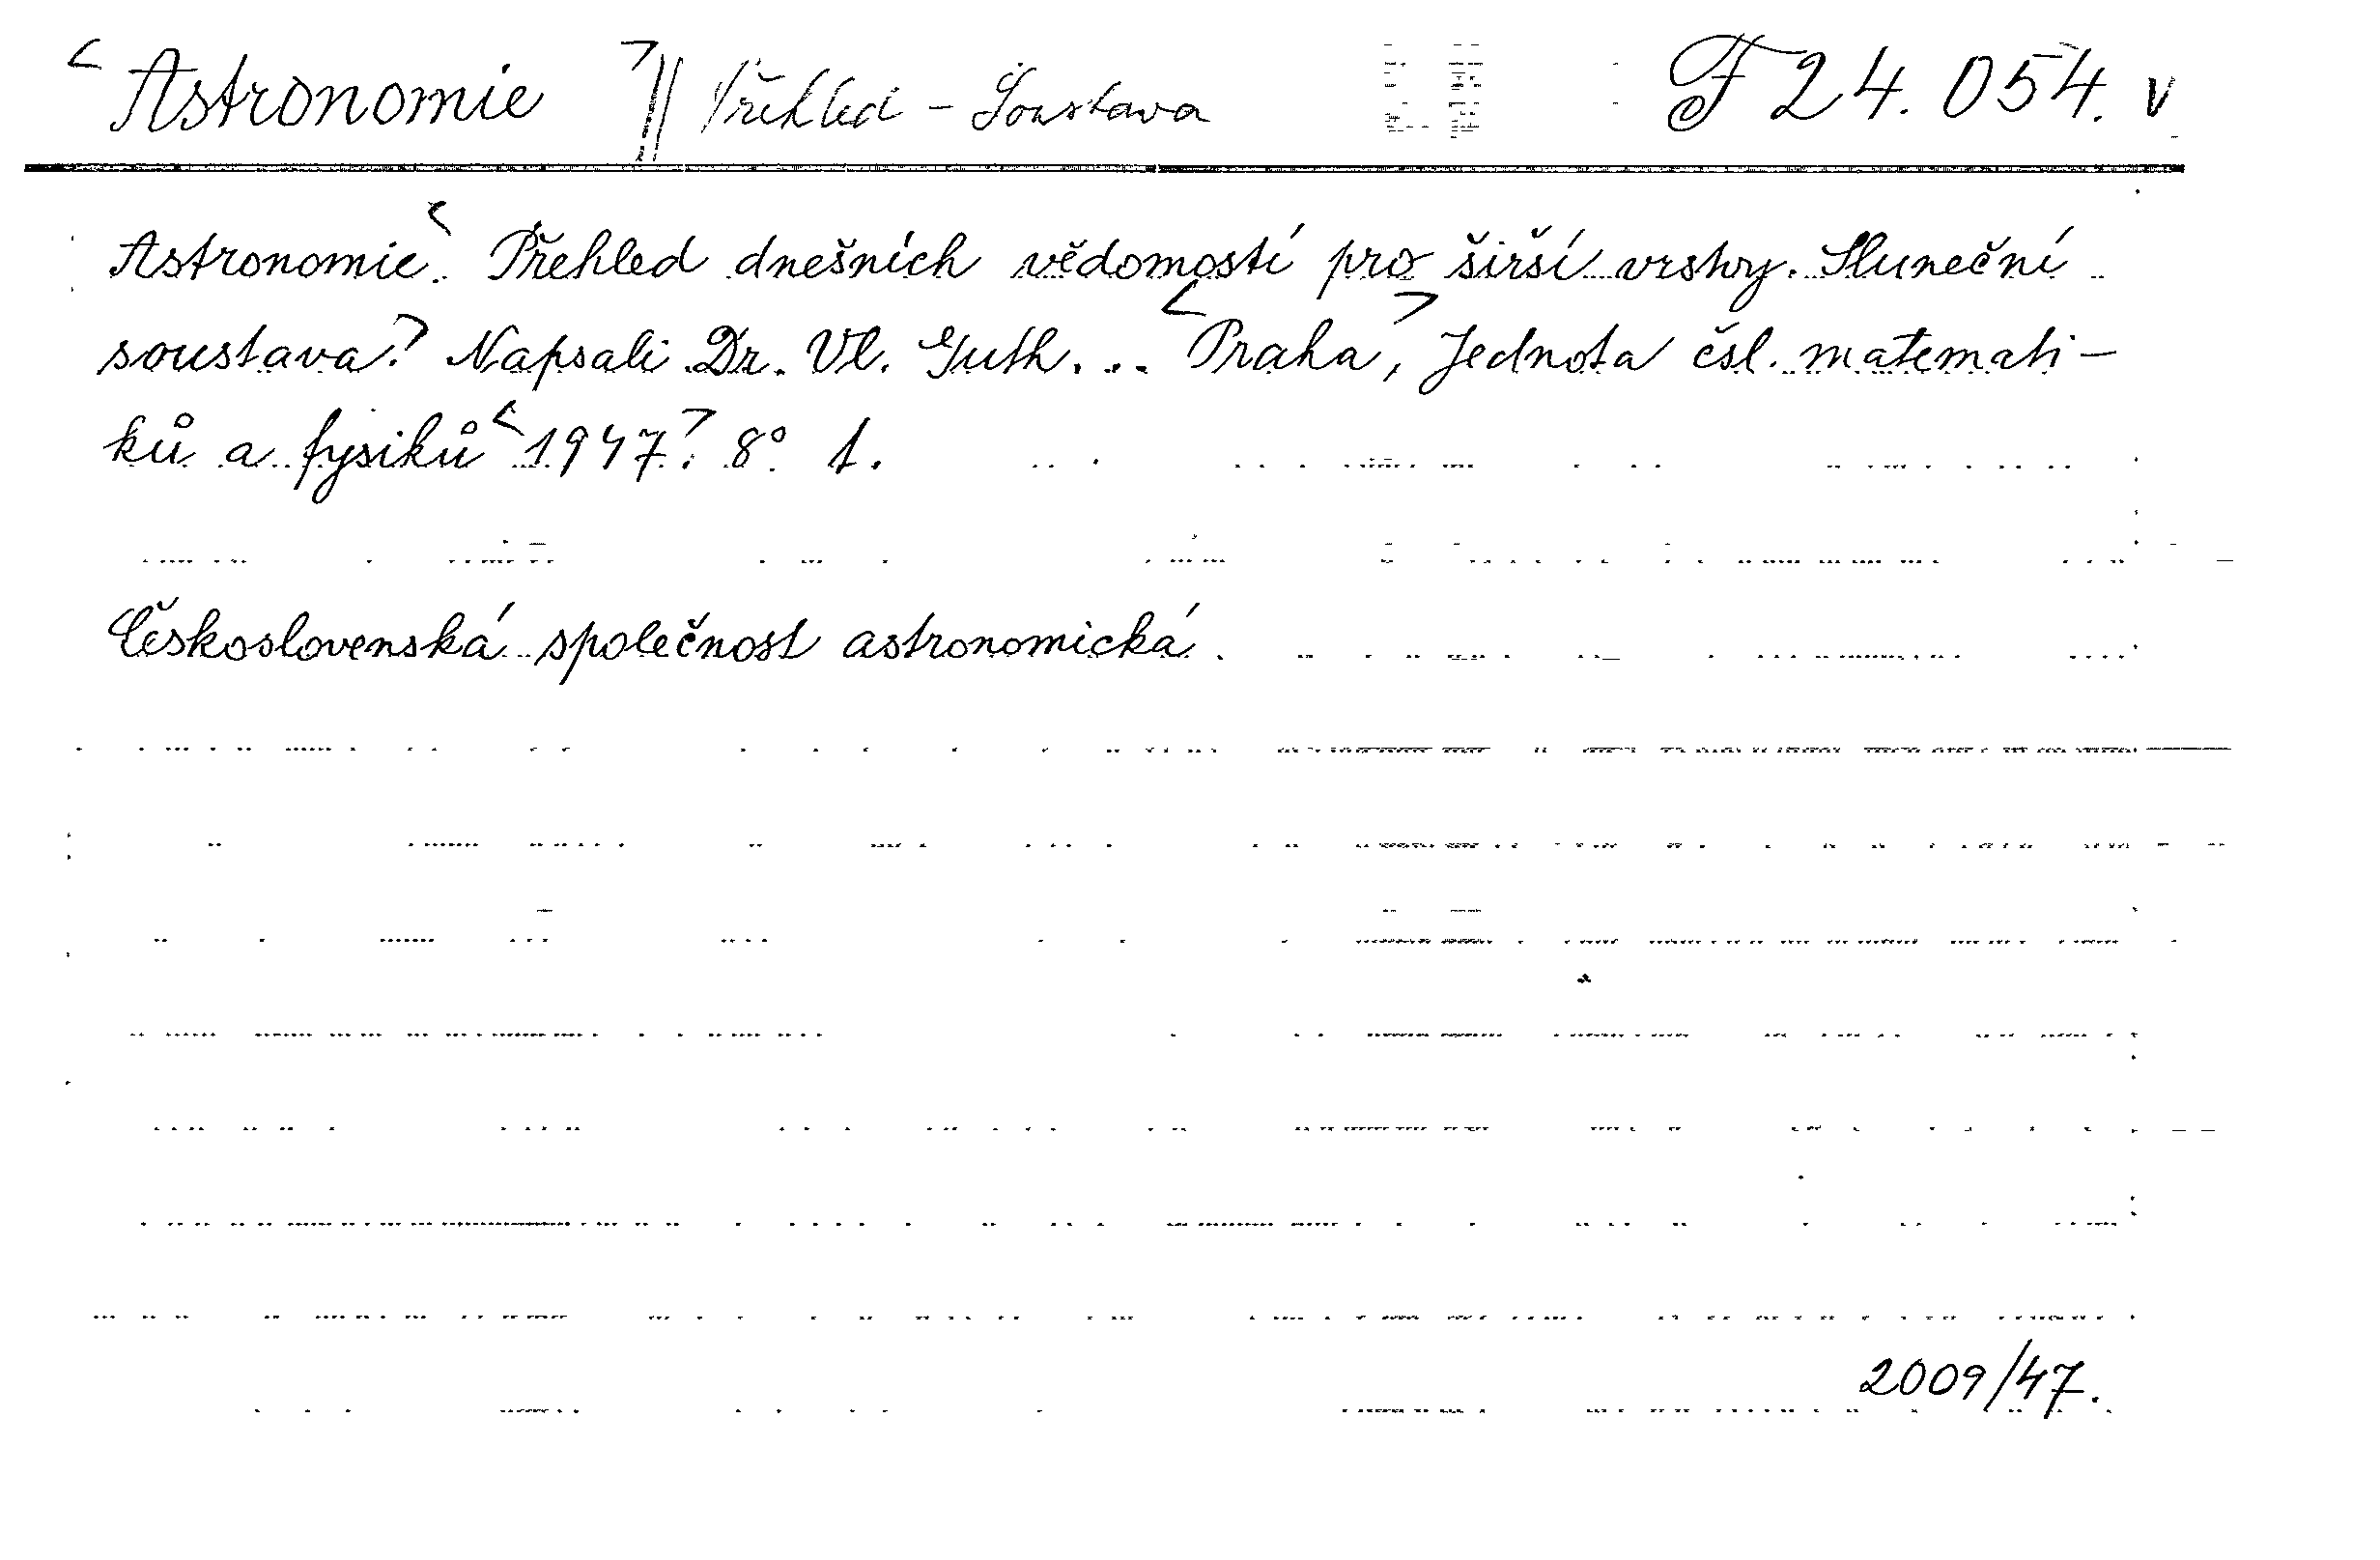 <Astronomie>|| Přehled - Soustava F 24.054. v
Astronomie<. Přehled dnešních vědomostí pro širší vrstvy. Sluneční
soustava>. Napsali Dr. Vl. Guth... <Praha>, Jednota čsl. matemati-
ků a fysiků <1947>. 8° 1.
Československá společnost astronomická.
2009/47.